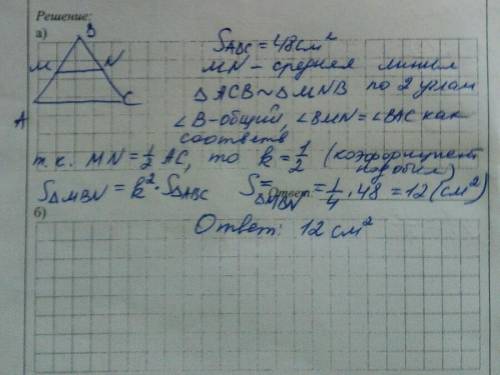 Решение:
а)
B
M
N
A
C
S ABC = 48 см²
MN – средняя линия
△ ACB ~ △ MNB по 2 углам
∠B – общий, ∠BMN = ∠BAC как
соответв
т.к. MN = 1/2 AC, то k = 1/2 (коэффициент
подобия)
S△MBN = k² · S△ABC S△MBN = 1/4 · 48 = 12 (см²)
Ответ:
б)
Ответ: 12 см²